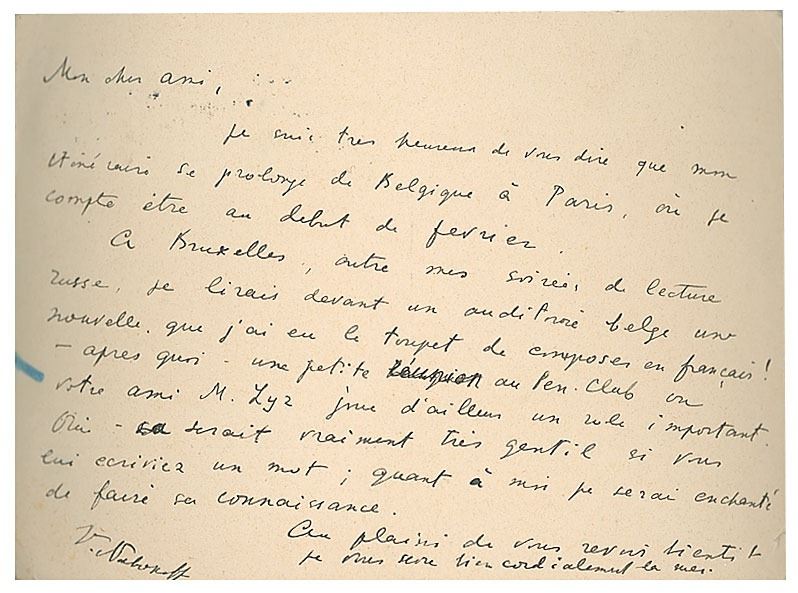 Mon cher ami,
je suis tres heureux de vous dire que mon
itinéraire se prolonge de Belgique à Paris, où je
compte être au debut de fevrier.
A Bruxelles, outre mes soirées de lecture
russe, je lirais devant un auditoire belge une
nouvelle que j'ai eu le toupet de composer en français!
– après quoi – une petite réunion au Pen-Club où
votre ami M. Zyz joue d'ailleurs un role important.
Oui – ça serait vraiment très gentil si vous
lui ecriviez un mot; quant à moi je serai enchanté
de faire sa connaissance.
Au plaisir de vous revoir bientôt
je vous serre bien cordialement la main.
V. Nabokoff